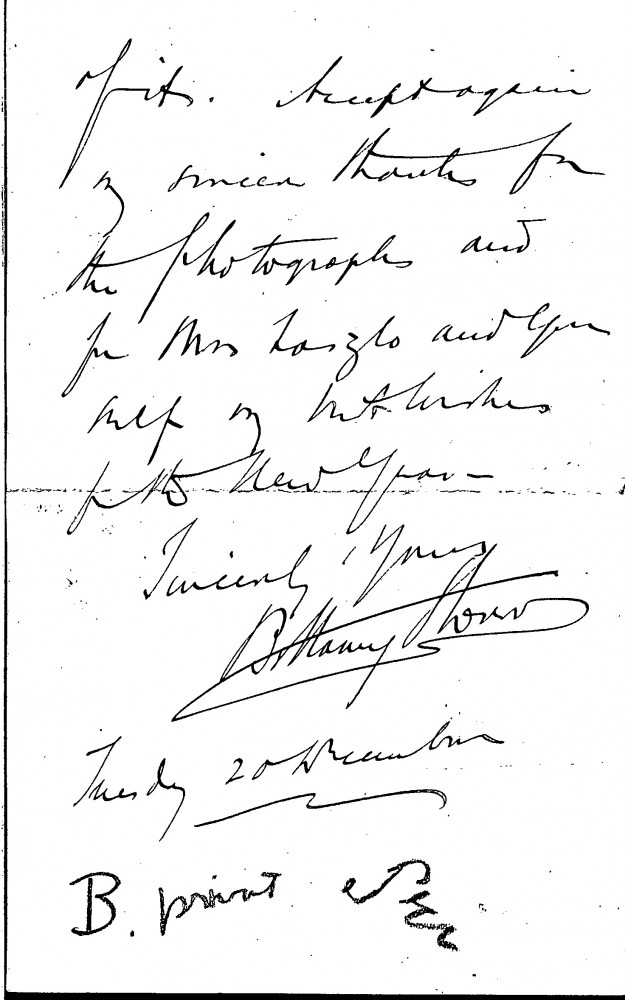 of it. Accept again
my sincere thanks for
the photographs and
for Mrs Laszlo and your
self my best wishes
for the New Year –
Sincerely Yours
Tuesday 20 December
B. privat